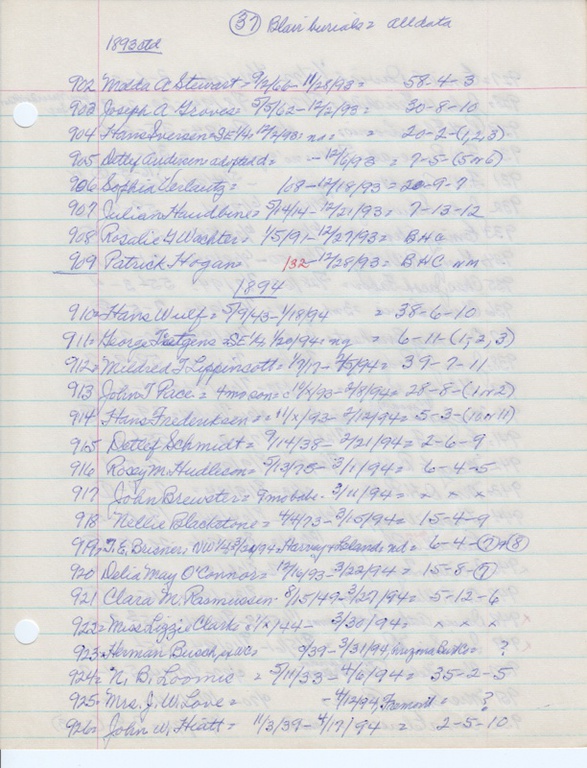 (37) Blair burials = all data
1893 ctd
902 Matta A Stewart = 9/2/66 - 11/28/93 = 58-4-3
903 Joseph A Groves = 5/5/62 - 12/2/93 = 30-8-10
904 Hans Iversen = SE 1/4; 12/2/93; no = = 20-2-(1,2,3)
905 Detlef Andersen = - 12/6/93 = 7-5-(5 or 6)
906 Sophia = 108 - 12/18/93 = 20-9-7
907 Julian = 5/14/14 - 12/21/93 = 7-13-12
908 Rosalie G Wachter = 1/5/91 - 12/27/93 = BHC
909 Patrick Hogan = 1/32 - 12/28/93 = BHC nm
1894
910 = Hans Wulf = 5/9/43 - 1/18/94 = 38-6-10
911 = George = SE 1/4, 1/20/94 = = 6-11-(1, 2, 3)
912 = Mildred F Lippincott = 1/7/17 - 94 = 39-7-11
913 John T Pace = 4 mo son = c 10/x/93 - 2/8/94 = 28-8-(1 or 2)
914 Hans Frederiksen = = 11/x/93 - 2/12/94 = 5-3-(10 or 11)
915 Detlef Schmidt = 9/14/38 - 2/21/94 = 2-6-9
916 Rosey M. Hudleson = 5/13/75 - 3/1/94 = 6-4-5
917 John Brewster = 9 mo babe - 3/11/94 = x x x
918 Nellie Blackstone = 4/4/73 - 3/15/94 = 15-4-9
919 = T. E. Brisner, NW 1/4, 3/20/94 Harvey + Leland nd = 6-4-(7) or (8)
920 Delia May O'Connor = 12/16/93 - 3/22/94 = 15-8-(7)
921 Clara M. Rasmussen - 8/15/49 - 3/27/94 = 5-12-6
922 = Miss Lizzie Clark = 1/x/44 - 3/30/94 = x x x
923 = Herman Busch, = 9/39 - 3/31/94, = ?
924 = N. B. Loomis = 5/11/33 - 4/6/94 = 35-2-5
925 = Mrs. J. W. Love = - 4/12/94, Fremont = ?
926 = John W. Hiatt = 11/3/39 - 4/17/94 = 2-5-10